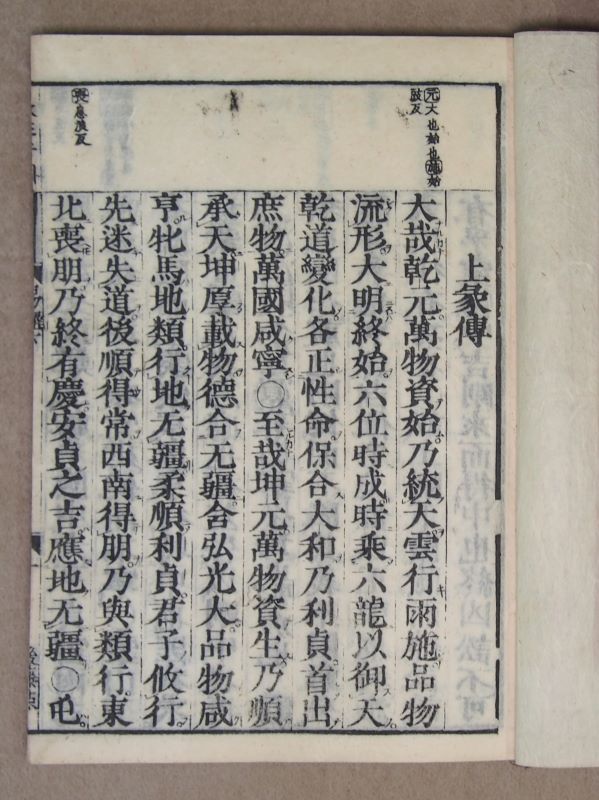 上彖傳
大哉乾元萬物資始乃統天雲行雨施品物
流形大明終始六位時成時乘六龍以御天
乾道變化各正性命保合大和乃利貞首出
庶物萬國咸寧○至哉坤元萬物資生乃順
承天坤厚載物德合无疆含弘光大品物咸
亨牝馬地類行地无疆柔順利貞君子攸行
先迷失道後順得常西南得朋乃與類行東
北喪朋乃終有慶安貞之吉應地无疆○屯
元大
也始也
施始
豉反
喪息浪反
後藤点